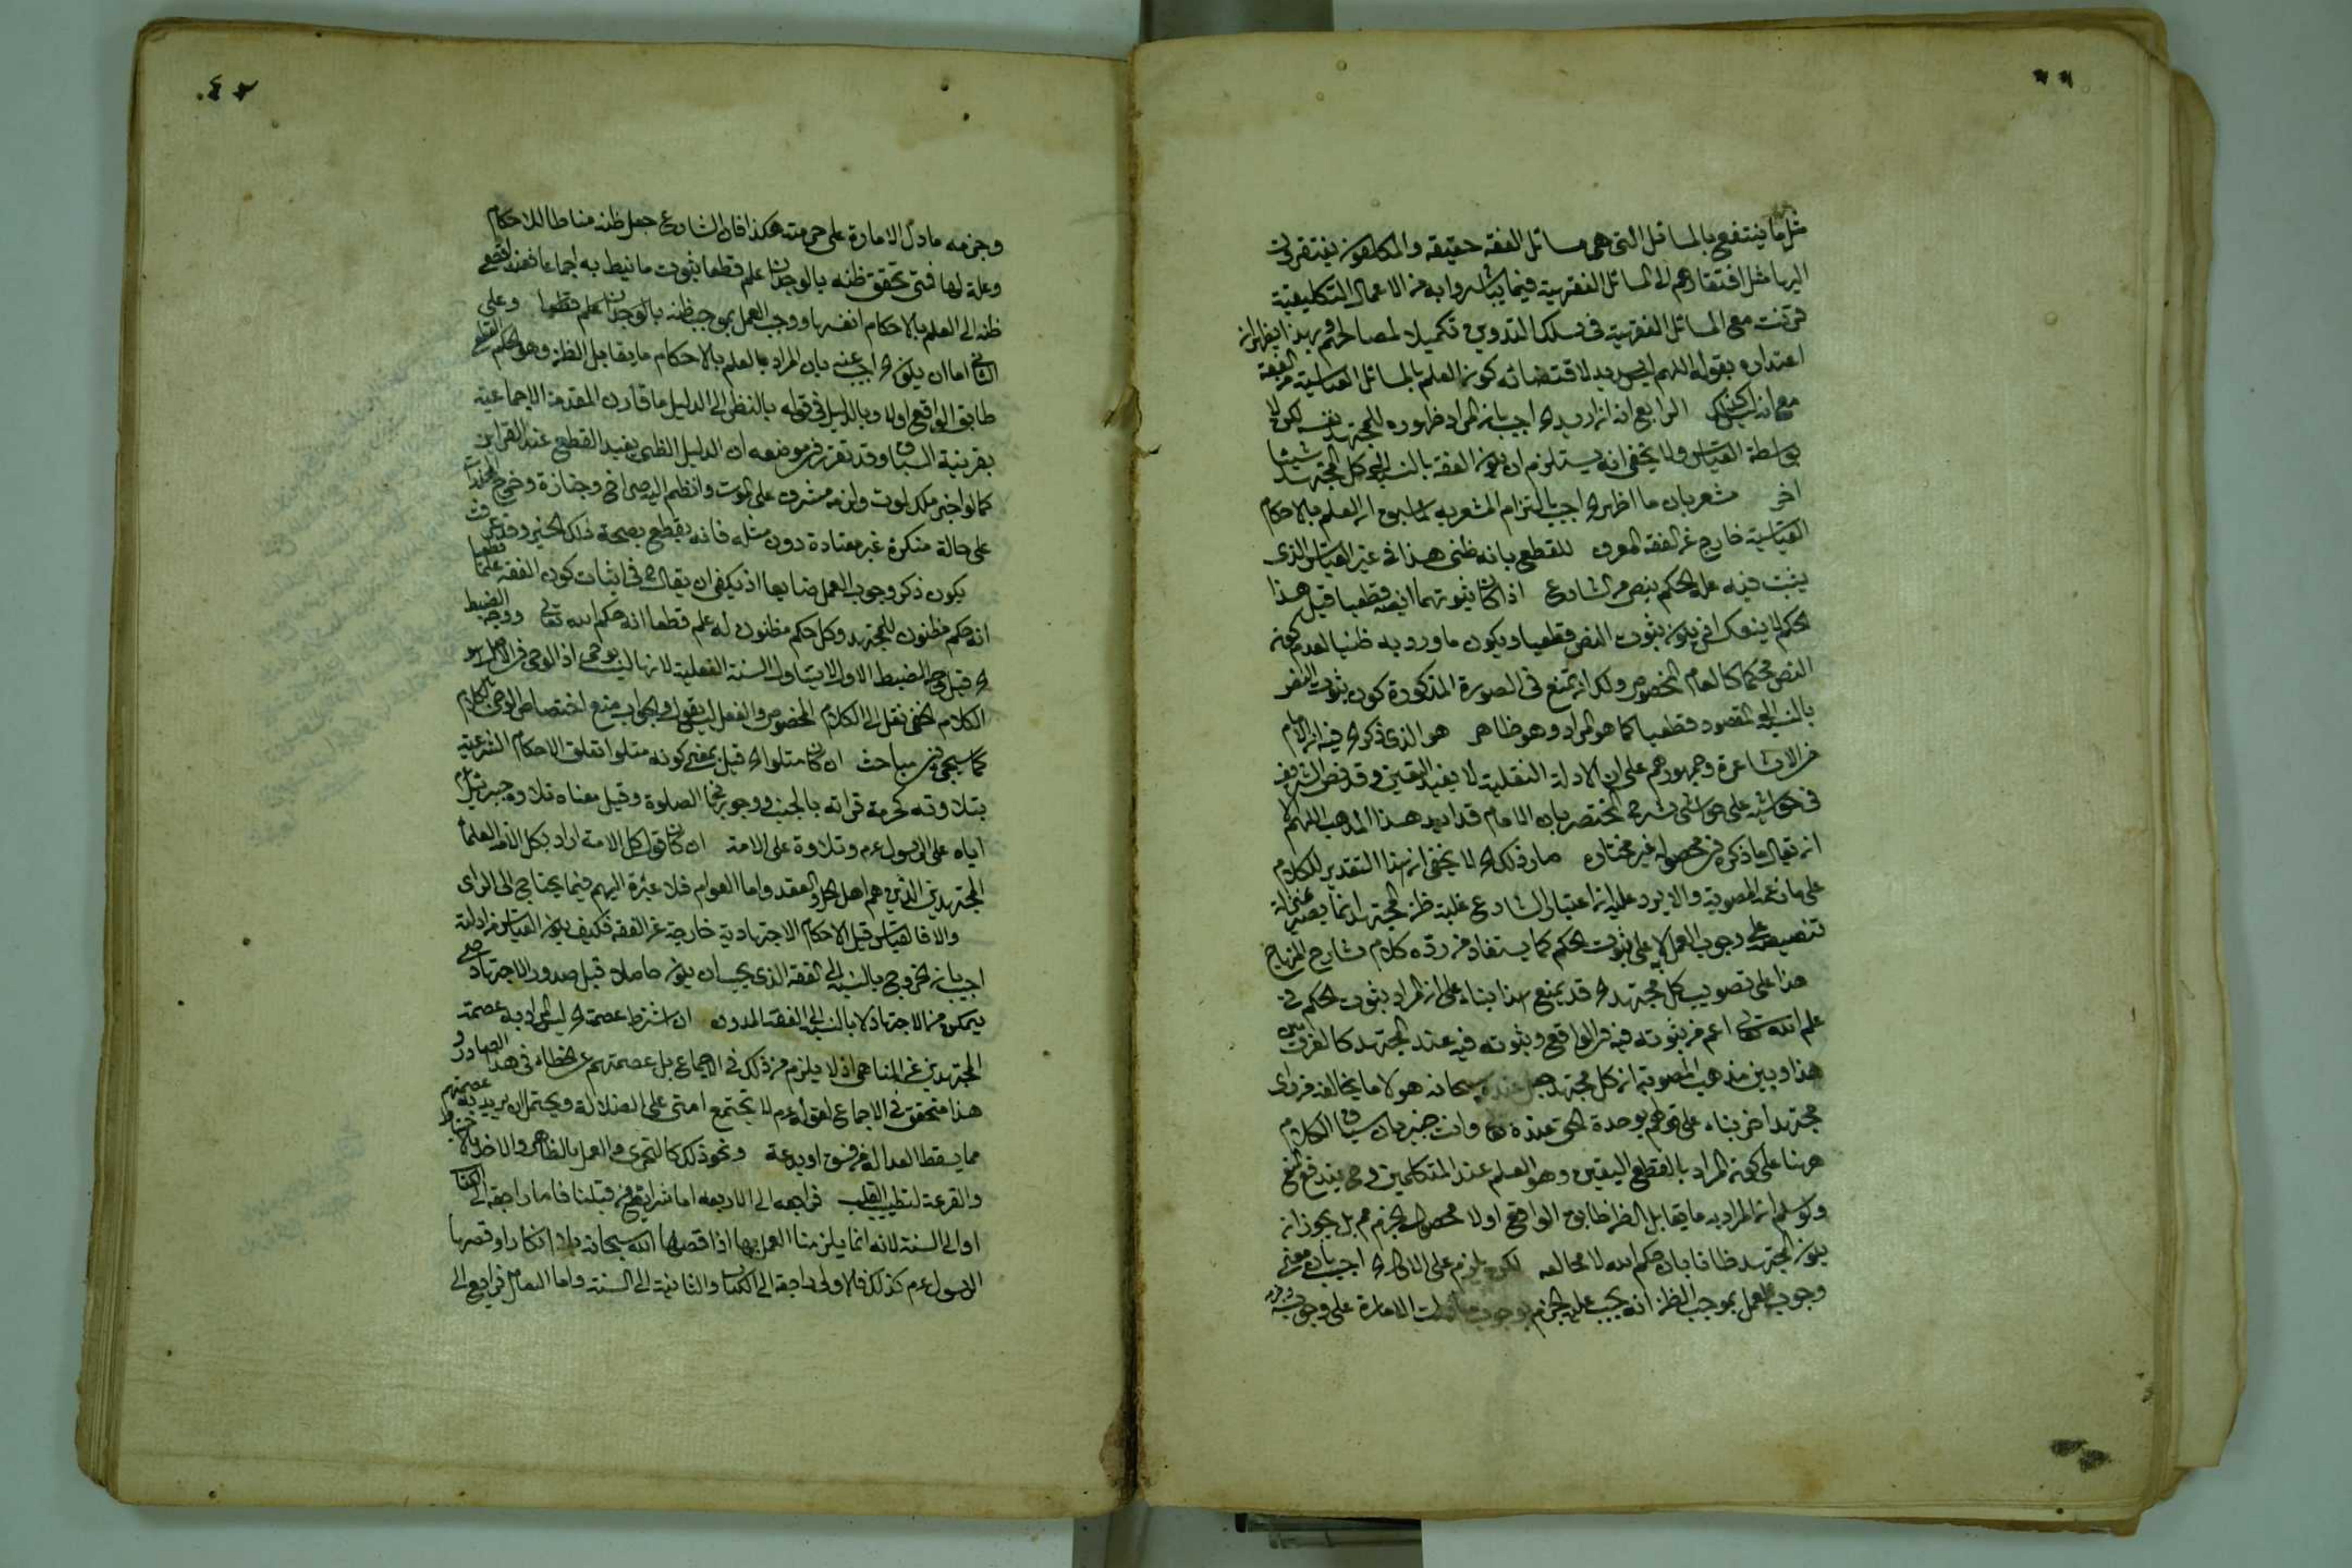 مثل ما ينتفع بالمسائل التى هى مسائل الفقه حقيقه والمكلفون يفتقرون
اليها مثل افتقارهم الى المسائل الفقهية فيما يباشروا به من الاعمال التكليفية
فرتبت مع المسائل الفقهية فى سلك التدوين تكميلا لمصالحهم وبهذا يظهر ان
اعتذاره بقوله اللهم ليس بسديد لاقتضائه كون العلم بالمسائل القياسية من الفقه
مع انه ليس كذلك الرابع انه ان اريد اه اجيب بان المراد ظهوره للمجتهد نفسه لكن لا
بواسطة القياس ولا يخفى انه يستلزم ان يكون الفقه بالنسبة الى كل مجتهد شيئا
اخر مشعر بان ما اظهر اه اجيب بالتزام المشعر به لما سبق ان العلم بالاحكام
القياسية خارج عن الفقه المعرف للقطع بانه ظنى هذا فى غير القياس الذى
يثبت فيه علة الحكم بنص من الشارع اذا كان ثبوتهما ايضا قطعيا قيل هذا
الحكم لا ينعكس اذ يكون ثبوت النص قطعيا ويكون ما ورد به ظنيا لعدم كونه
النص محكما كالعام المخصوص ولك ان تمنع فى الصورة المذكورة كون ثبوت النص
بالنسبة الى المقصود قطعيا كما هو المراد وهو ظاهر هو الذى ذكره فيه ان الامام
من الاشاعرة وجمهورهم على ان الادلة النقلية لا يفيد اليقين وقد نص الشريف
فى حواشيه على حواشى شرح المختصر بان الامام قد ايد هذا المذهب اللهم الا
ان يقال ما ذكره فى محصوله غير مختاره صار ذلك اه لا يخفى ان هذا التقدير للكلام
على ما زعم المصوبة والا يرد عليه ان اعتبار الشارع غلبة ظن المجتهد انما يصير بمنزلة
تنصيصه على وجوب العمل لا على ثبوت الحكم كما يستفاد من رده كلام شارح المنهاج
هذا على تصويب كل مجتهد اه قد يمنع هذا بناء على ان المراد بثبوت الحكم فى
علم الله تعالى اعم من ثبوته فيه فى الواقع وثبوته فيه عند المجتهد كالفرق بين
هذا وبين مذهب المصوبة ان كل مجتهد جعل عنده سبحانه هو لا ما يخالفه من راى
مجتهد اخر بناء على قولهم بوحدة الحق عنده تعالى وانت خبير بان سياق الكلام
ههنا على كون المراد بالقطع اليقين وهو العلم عند المتكلمين فح يندفع المنع
ولو سلم ان المراد به ما يقابل الظن طابق الواقع اولا فحصول الجزم مم بل يجوز ان
يكون المجتهد ظانا بان حكم الله لا محالة لكن يلزم على الاول اه اجيب بان معنى
وجوب العمل بموجب الظن انه يجب عليه الجزم بوجوب ما دلت الامارة على وجوبه
وحرمة ما دل الامارة على حرمته هكذا فان الشارع جعل ظنه مناطا للاحكام
وعلة لها فمتى تحقق ظنه بالوجدان علم قطعا ثبوت ما نيط به اجماعا فقد افضى
ظنه الى العلم بالاحكام انفسها ووجب العمل بموجب ظنه بالوجدان علم قطعا وعلى
الثانى اما ان يكون اه اجيب عنه بان المراد بالعلم بالاحكام ما يقابل الظن وهو الحكم القطعى
طابق الواقع اولا وبالدليل فى قوله بالنظر الى الدليل ما قارن المقدمة الاجماعية
بقرينة السياق وقد تقرر فى موضعه ان الدليل الظنى يفيد القطع عند القراين
كما لو اخبر ملك بموت ولد له مشرف على الموت وانظم اليه صراخ وجنازة وخروج المخدرات
على حالة منكرة غير معتادة دون مثله فانه يقطع بصحة ذلك الخبر وقد عرفت
يكون ذكر وجوب العمل ضايعا اذ يكفى ان يقال اه فى اثبات كون الفقه علما قطعيا
انه حكم مظنون للمجتهد وكل حكم مظنون له علم قطعا انه حكم الله تعالى ووجه الضبط
اه قيل وجه الضبط الاول لا يتناول السنة الفعلية لانها ليست بوحى اذ الوحى فى الاصل هو
الكلام الخفى نقل الى الكلام المخصوص والفعل ليس بقول والجواب منع اختصاص الوحى بالكلام
كما سيجئ فى مباحث ان كان متلوا اه قيل بمعنى كونه متلوا تعلق الاحكام الشرعية
بتلاوته كحرمة قراته بالجنب ووجوبها فى الصلوة وقيل معناه تلاوة جبرئيل
اياه على الرسول ءم وتلاوة على الامة ان كان قول كل الامة اراد بكل الامة العلماء
المجتهدين الذين هم اهل الحل والعقد واما العوام فلا عبرة اليهم فيما يحتاج الى الراى
والا فالقياس قيل الاحكام الاجتهادية خارجة عن الفقه فكيف يكون القياس من ادلته
اجيب بان الخروج بالنسبة الى الفقه الذى يجب ان يكون حاصلا قبل صدور الاجتهاد حتى
يتمكن من الاجتهاد لا بالنسبة الى الفقه المدون ان اشترط عصمته اه ليس المراد به عصمة
المجتهدين عن المناهى اذ لا يلزم من ذلك فى الاجماع بل عصمتهم عن الخطاء فى هذا الصادر و
هذا متحقق فى الاجماع لقوله ءم لا يجتمع امتى على الضلالة ويحتمل ان يريد به عصمتهم
مما يسقط العدالة من فسق او بدعة ونحو ذلك كالتحرى والعمل بالظاهر والاخذ بالاحتياط
والقرعة لتطييب القلب فراجعه الى الاربعه اما شرايع من قبلنا فاما راجعة الى الكتاب
او الى السنة لانه انما يلزمنا العمل بها اذا قصها الله سبحانه بلا انكار او قصها
الرسول ءم كذلك فالاولى راجعة الى الكتاب والثانية الى السنة واما التعامل فراجع الى